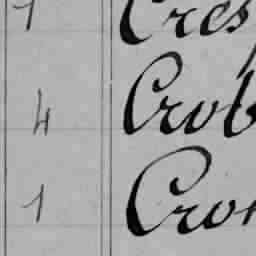 1 Cres
4 Crob
1 Cron